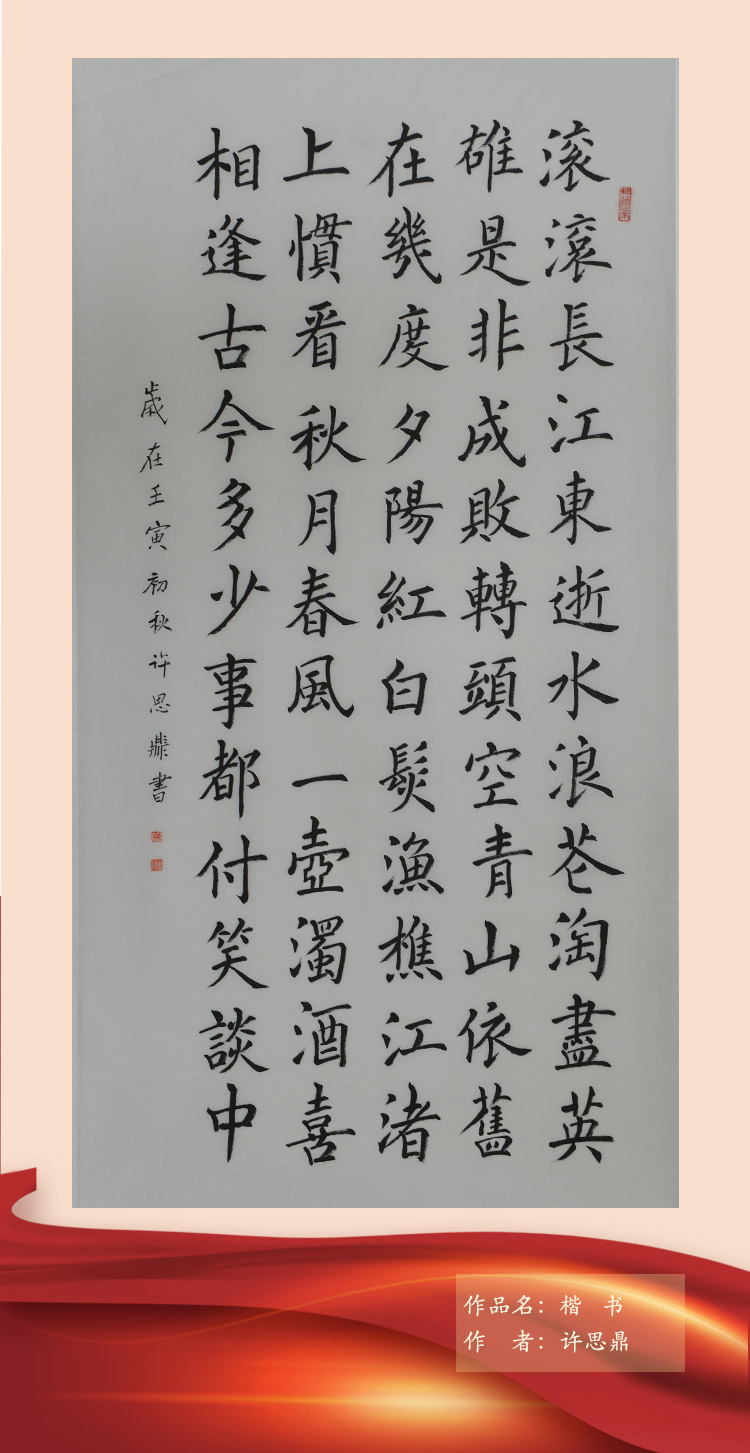 滚滾長江東逝水浪花淘盡英
雄是非成敗轉頭空青山依舊
在幾度夕陽紅白髮漁樵江渚
上慣看秋月春風一壺濁酒喜
相逢古今多少事都付笑談中
歲在壬寅初秋许思鼎書
作品名：楷 书
作 者：许思鼎